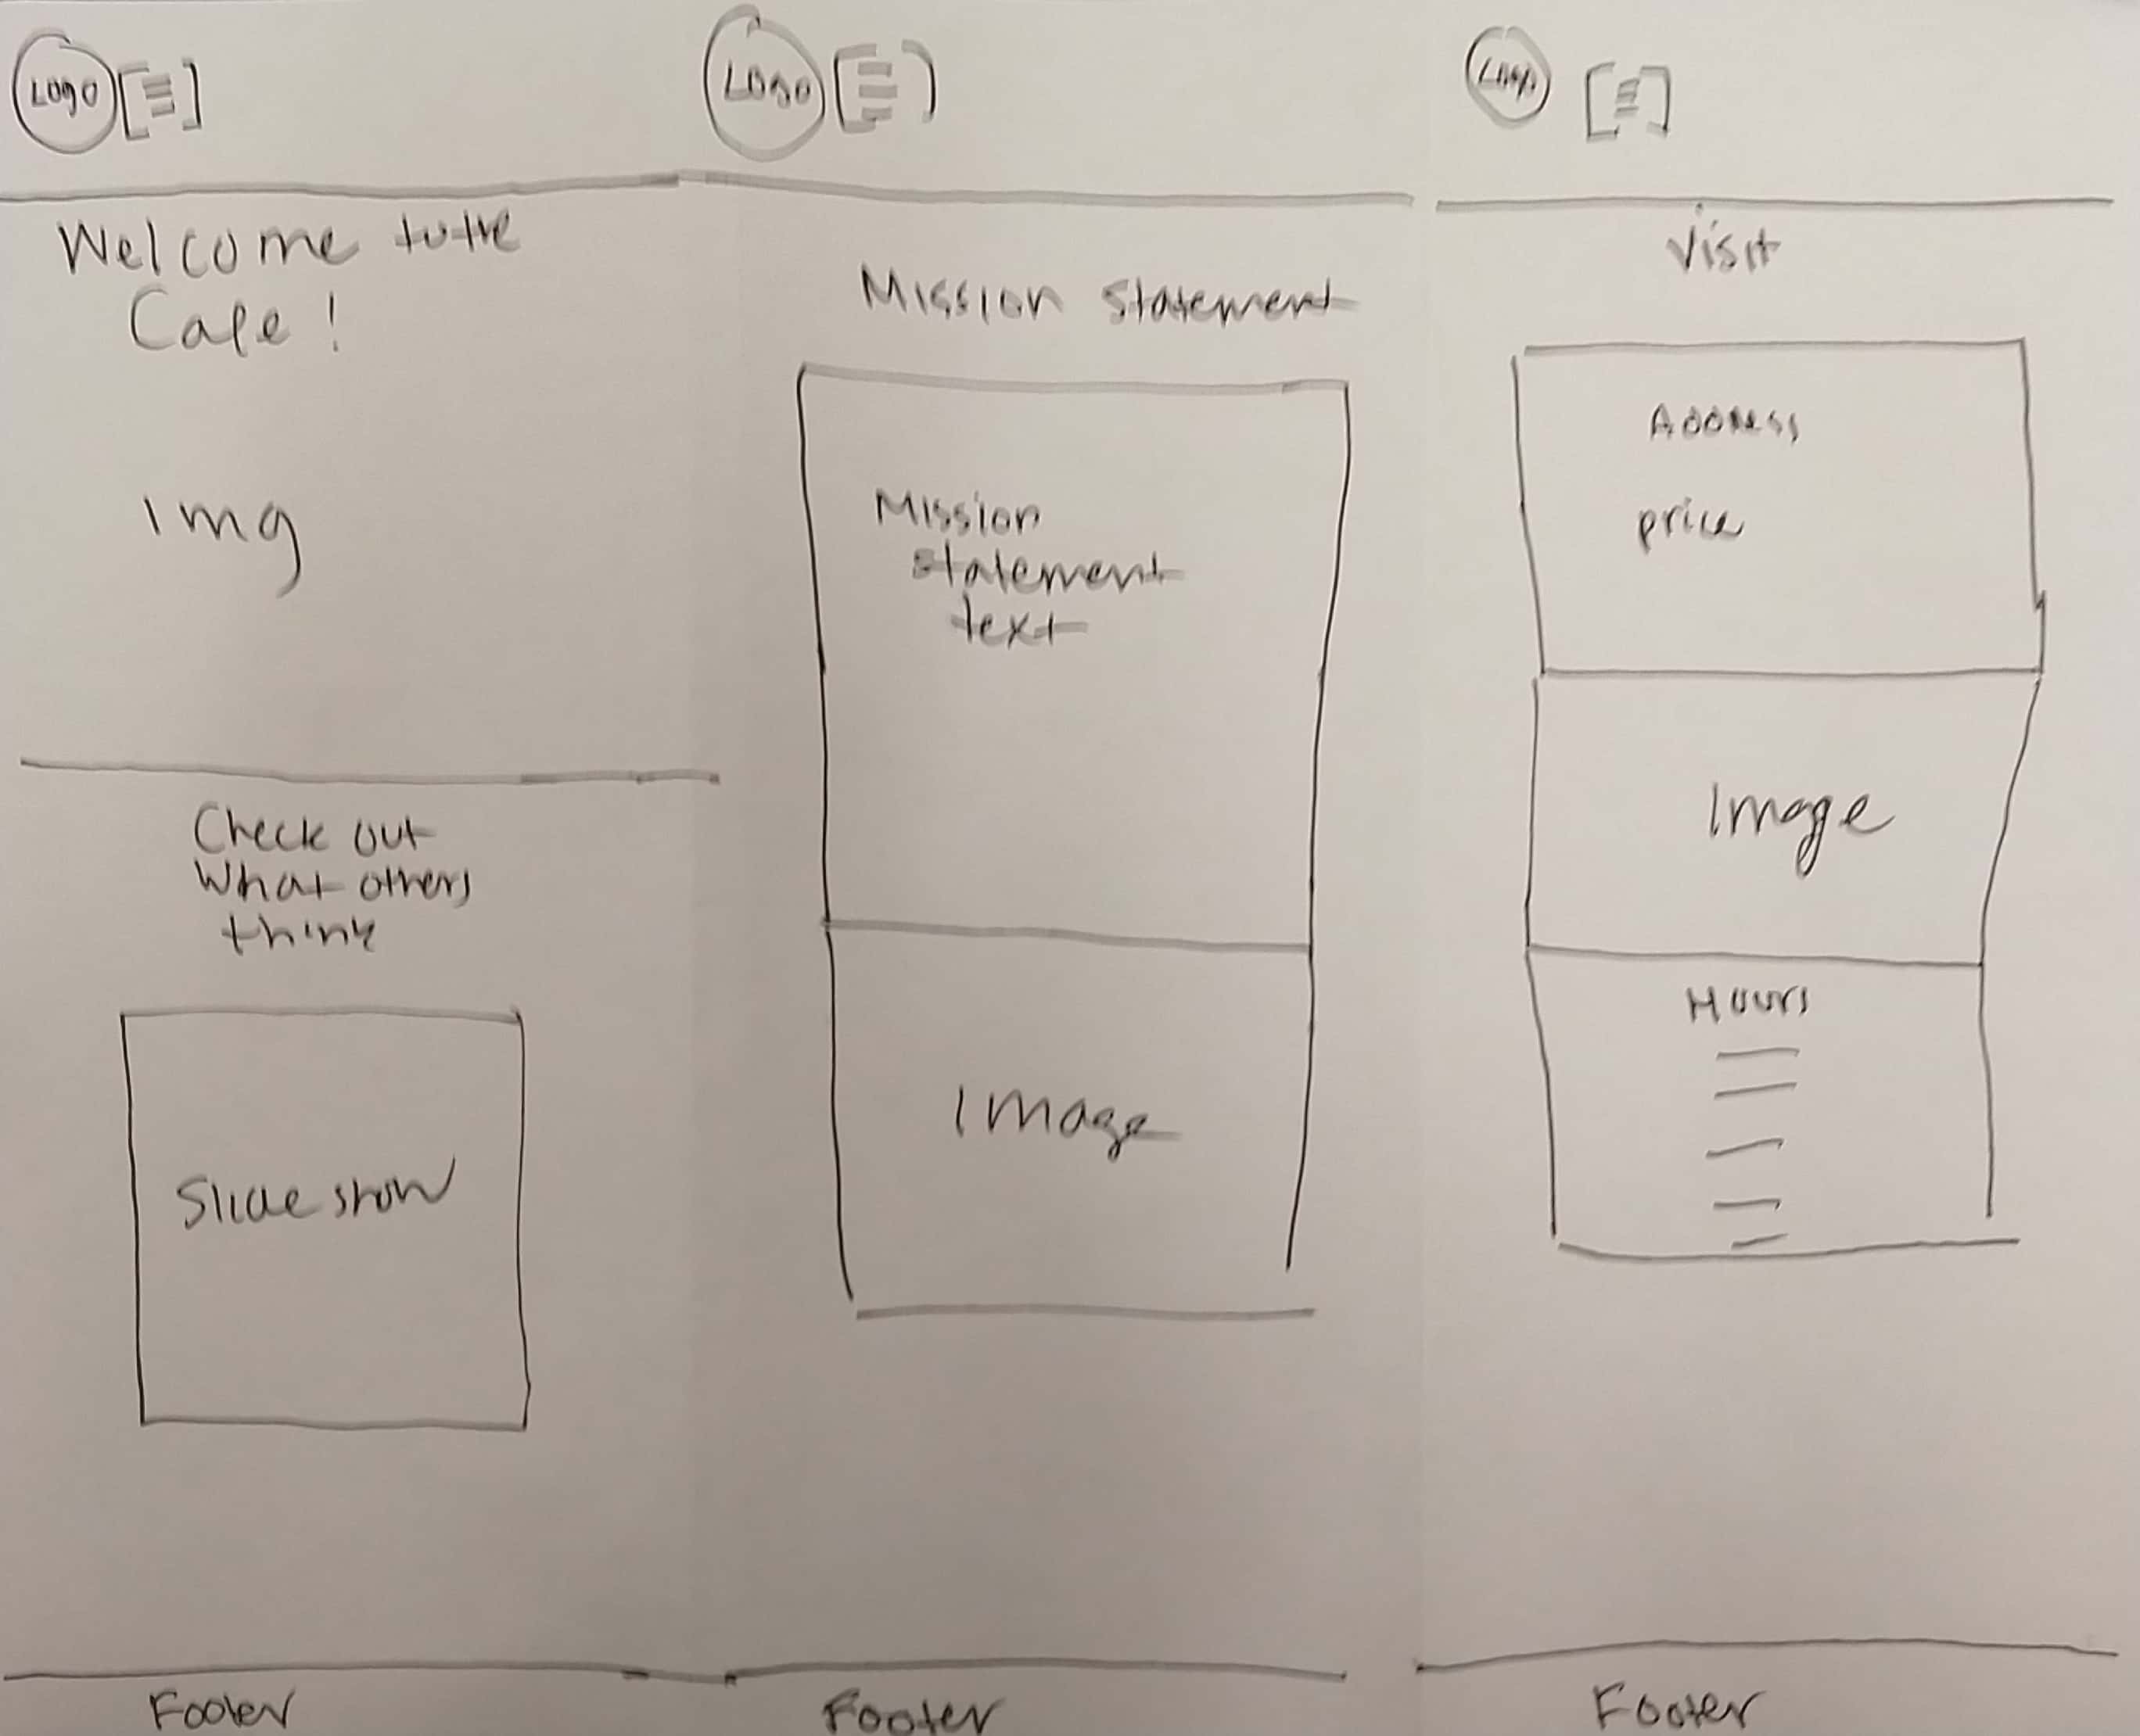 Logo
Welcome to the
Cafe!
Img
Check out
What others
think
Slide show
Footer
Logo
Mission statement
Mission
statement
text
Image
Footer
Logo
Visit
Address
price
Image
Hours
Footer